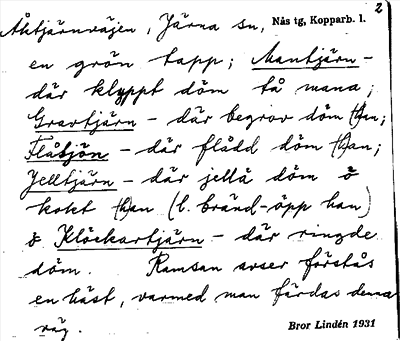 2
Åktjärnvägen, Järna sn, Nås tg, Kopparb. l.
en grön tapp; Mantjärn –
där klyppt döm tå mana;
Gravtjärn – där begrov döm (h)an;
Flåtjön – där flådd döm (h)an;
Jelltjärn – där jellå döm å
kokt (h)an (l. bränd-öpp han)
å Klöckartjärn – där ringde
döm. Ramsan avser förstås
en häst, varmed man färdas denna
väg.
Bror Lindén 1931